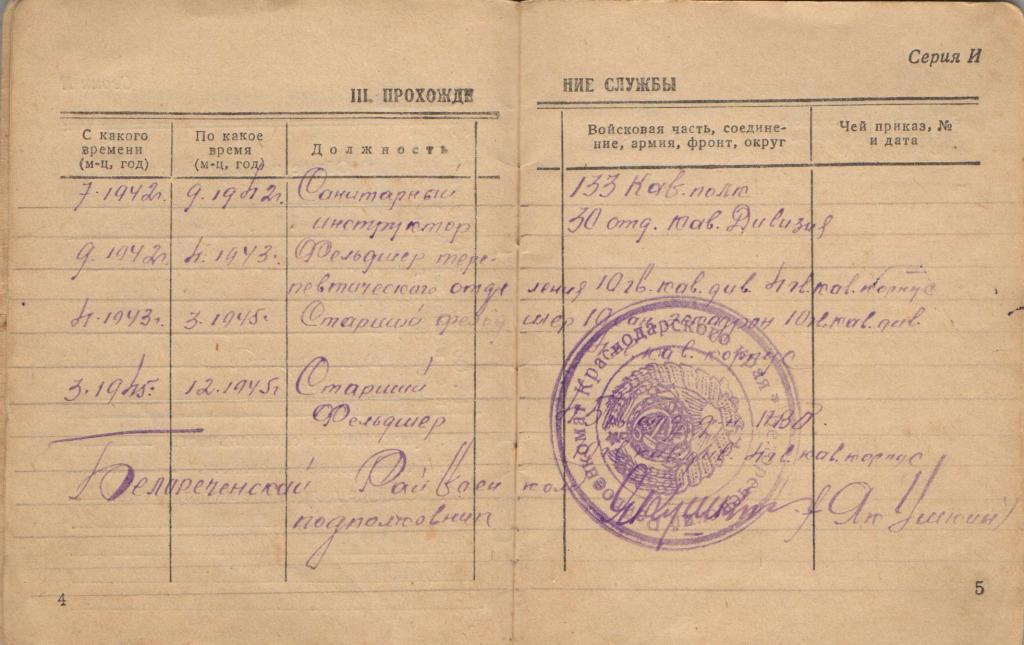 Серия И
III. ПРОХОЖДЕНИЕ СЛУЖБЫ
С какого времени (м-ц, год)
По какое время (м-ц, год)
Должность
Войсковая часть, соединение, армия, фронт, округ
Чей приказ, № и дата
7.1942г. 9.1942г. Санитарный 133 Кав. полк
инструктор 30 отд. кав. Дивизия
9.1942г. 4.1943г. Фельдшер тере-
певтического отделения 10 гв. кав. див. 4 гв. кав. корпус
4.1943г. 3.1945г. Старший фельдшер 10 сан. эскадрон 10 гв. кав. див.
кав. корпус
3.1945г. 12.1945г. Старший
Фельдшер кав. див. 4 гв. кав. корпус
Белореченский РайВоенком
подполковник (Якушкин)
Краснодарского края
4
5